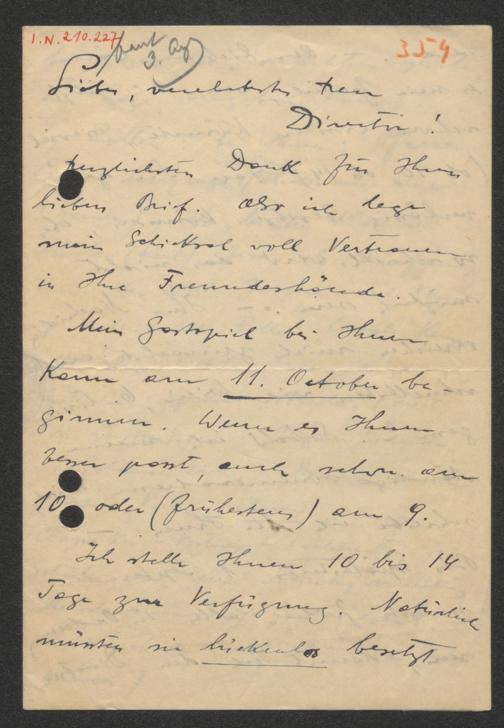 I.N. 210.227
3. Aug
354
Lieber, verehrtester Herr
Director!
Herzlichsten Dank für Ihren
lieben Brief. Also ich lege
mein Schicksal voll Vertrauen
in Ihre Freundeshände.
Mein Gastspiel bei Ihnen
kann am 11. October be-
ginnen. Wenn es Ihnen
besser passt, auch schon am
10. oder (frühestens) am 9.
Ich stelle Ihnen 10 bis 14
Tage zur Verfügung. Natürlich
müssten sie lückenlos besetzt